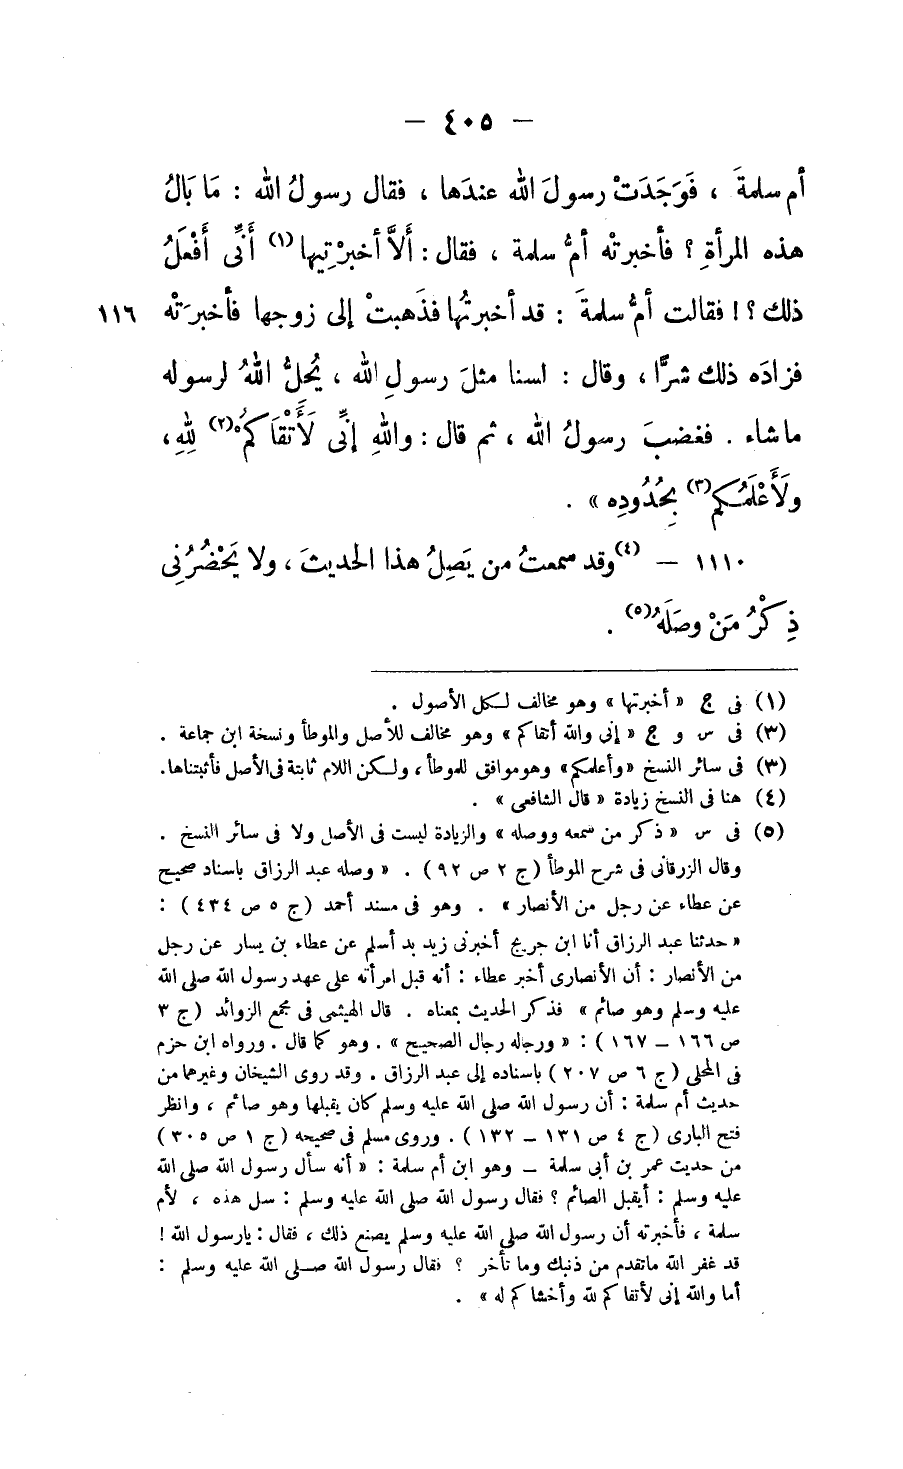 — ٤٠٥ —
أم سلمةَ ، فَوَجَدَتْ رسولَ الله عندَها ، فقال رسولُ الله : مَا بَالُ
هذه المرأةِ ؟ فأخبرتْه أمُّ سلمة ، فقال : أَلاَّ أخبرْتِيها(١) أَنِّى أَفْعَلُ
ذلك ؟ ! فقالت أمُّ سلمةَ : قد أخبرتُها فذَهبتْ إلى زوجها فأخبرَتْه ١١٦
فزادَه ذلك شرًّا ، وقال : لسنا مثلَ رسولِ الله ، يُحِلُّ اللهُ لرسوله
ما شاء . فغضبَ رسولُ الله ، ثم قال : واللهِ إنِّى لَأَتْقَاكُمْ(٢) لِلهِ ،
ولَأَعْلَمُكم(٣) بِحُدُودِه » .
١١١٠ — (٤)وقد سمعتُ من يَصِلُ هذا الحديثَ ، ولا يَحْضُرُنِى
ذِكْرُ مَنْ وصَلَهُ(٥) .
(١) فى ج « أخبرتها » وهو مخالف لكل الأصول .
(٣) فى س و ع « إنى والله أتقاكم » وهو مخالف للأصل والموطأ ونسخة ابن جماعة .
(٣) فى سائر النسخ « وأعلمكم » وهو موافق للموطأ ، ولكن اللام ثابتة فى الأصل فأثبتناها .
(٤) هنا فى النسخ زيادة « قال الشافعى » .
(٥) فى س « ذكر من سمعه ووصله » والزيادة ليست فى الأصل ولا فى سائر النسخ .
وقال الزرقانى فى شرح الموطأ (ج ٢ ص ٩٢) . « وصله عبد الرزاق باسناد صحيح
عن عطاء عن رجل من الأنصار » . وهو فى مسند أحمد (ج ٥ ص ٤٣٤) :
« حدثنا عبد الرزاق أنا ابن جريج أخبرنى زيد بد أسلم عن عطاء بن يسار عن رجل
من الأنصار : أن الأنصارى أخبر عطاء : أنه قبل امرأته على عهد رسول الله صلى الله
عليه وسلم وهو صائم » فذكر الحديث بمعناه . قال الهيثمى فى مجمع الزوائد (ج ٣
ص ١٦٦ — ١٦٧) : « ورجاله رجال الصحيح » . وهو كما قال . ورواه ابن حزم
فى المحلى (ج ٦ ص ٢٠٧) باسناده إلى عبد الرزاق . وقد روى الشيخان وغيرهما من
حديث أم سلمة : أن رسول الله صلى الله عليه وسلم كان يقبلها وهو صائم ، وانظر
فتح البارى (ج ٤ ص ١٣١ — ١٣٢) . وروى مسلم فى صحيحه (ج ١ ص ٣٠٥)
من حديث عمر بن أبى سلمة — وهو ابن أم سلمة : « أنه سأل رسول الله صلى الله
عليه وسلم : أيقبل الصائم ؟ فقال رسول الله صلى الله عليه وسلم : سل هذه ، لأم
سلمة ، فأخبرته أن رسول الله صلى الله عليه وسلم يصنع ذلك ، فقال : يارسول الله !
قد غفر الله ماتقدم من ذنبك وما تأخر ؟ فقال رسول الله صلى الله عليه وسلم :
أما والله إنى لأتقاكم لله وأخشاكم له » .